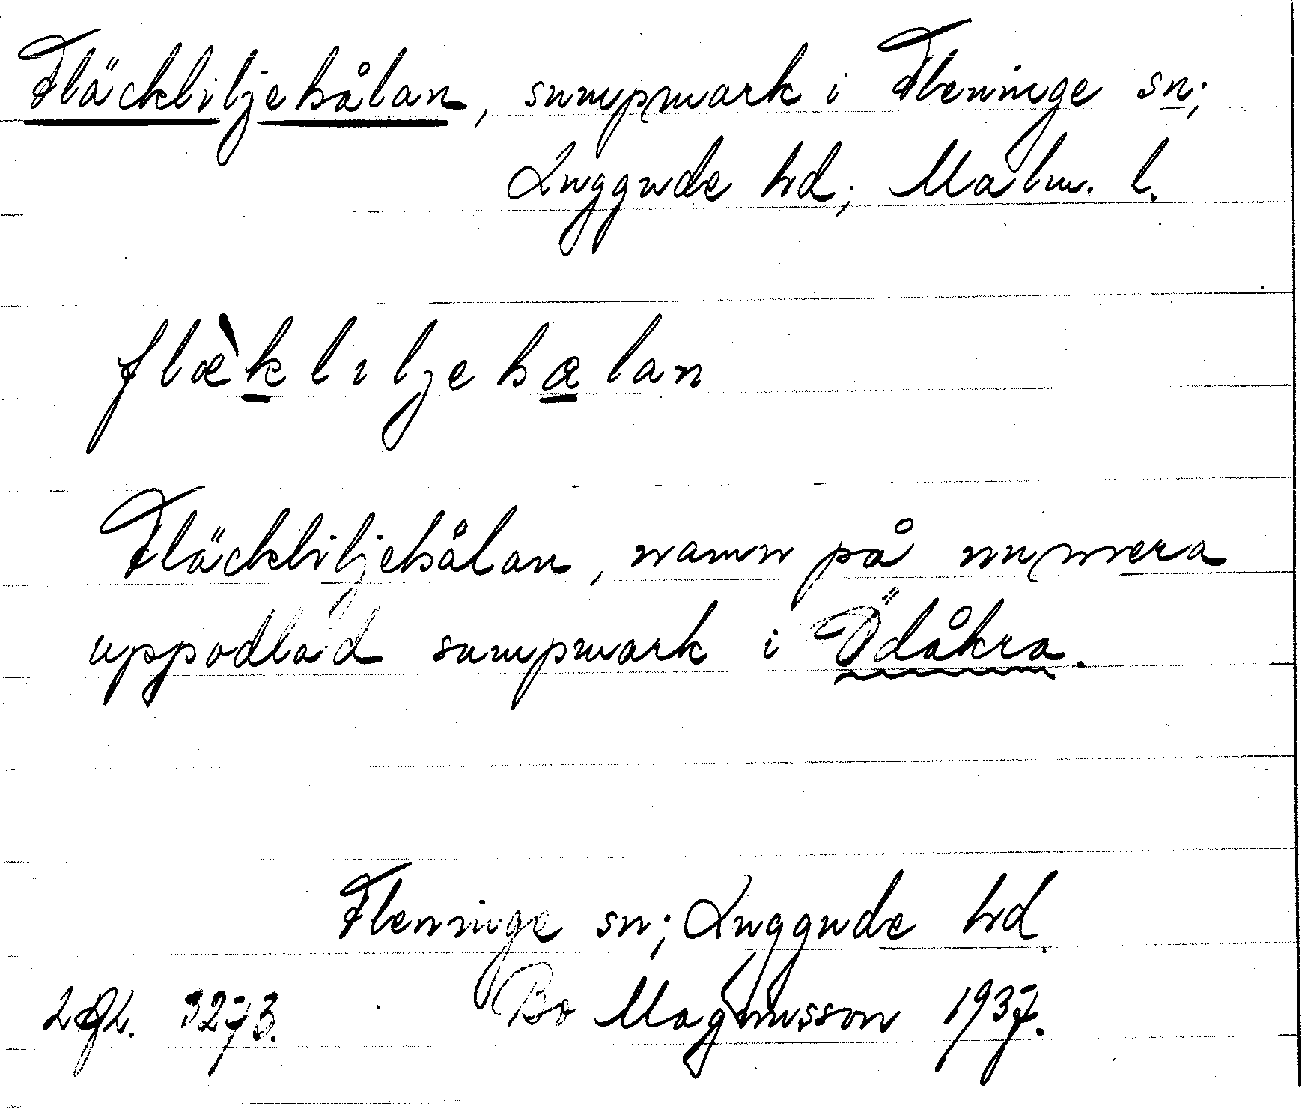 Fläckliljehålan, sumpmark i Fleninge sn;
Luggude hd; Malm. l.
flæ̀kliljehælan
Fläckliljehålan, namn på nu mera
uppodlad sumpmark i Ödåkra.
Fleninge sn; Luggude hd.
3273. Bo Magnusson 1937.